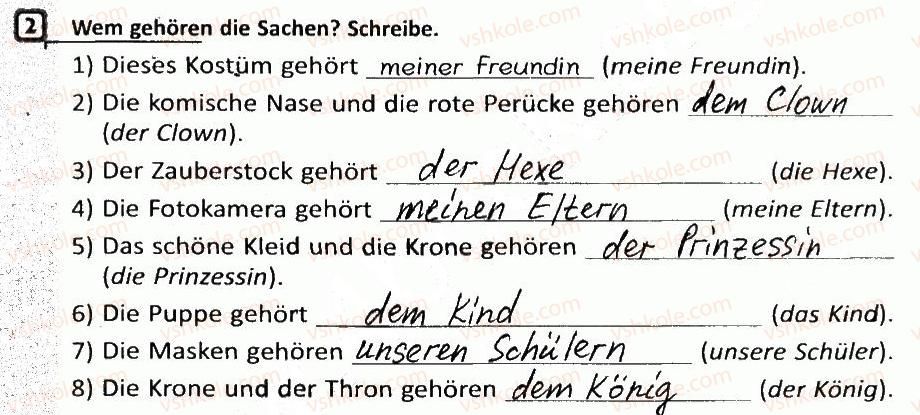 2 Wem gehören die Sachen? Schreibe.
1) Dieses Kostüm gehört meiner Freundin (meine Freundin).
2) Die komische Nase und die rote Perücke gehören dem Clown
(der Clown).
3) Der Zauberstock gehört der Hexe (die Hexe).
4) Die Fotokamera gehört meinen Eltern (meine Eltern).
5) Das schöne Kleid und die Krone gehören der Prinzessin
(die Prinzessin).
6) Die Puppe gehört dem Kind (das Kind).
7) Die Masken gehören unseren Schülern (unsere Schüler).
8) Die Krone und der Thron gehören dem König (der König).